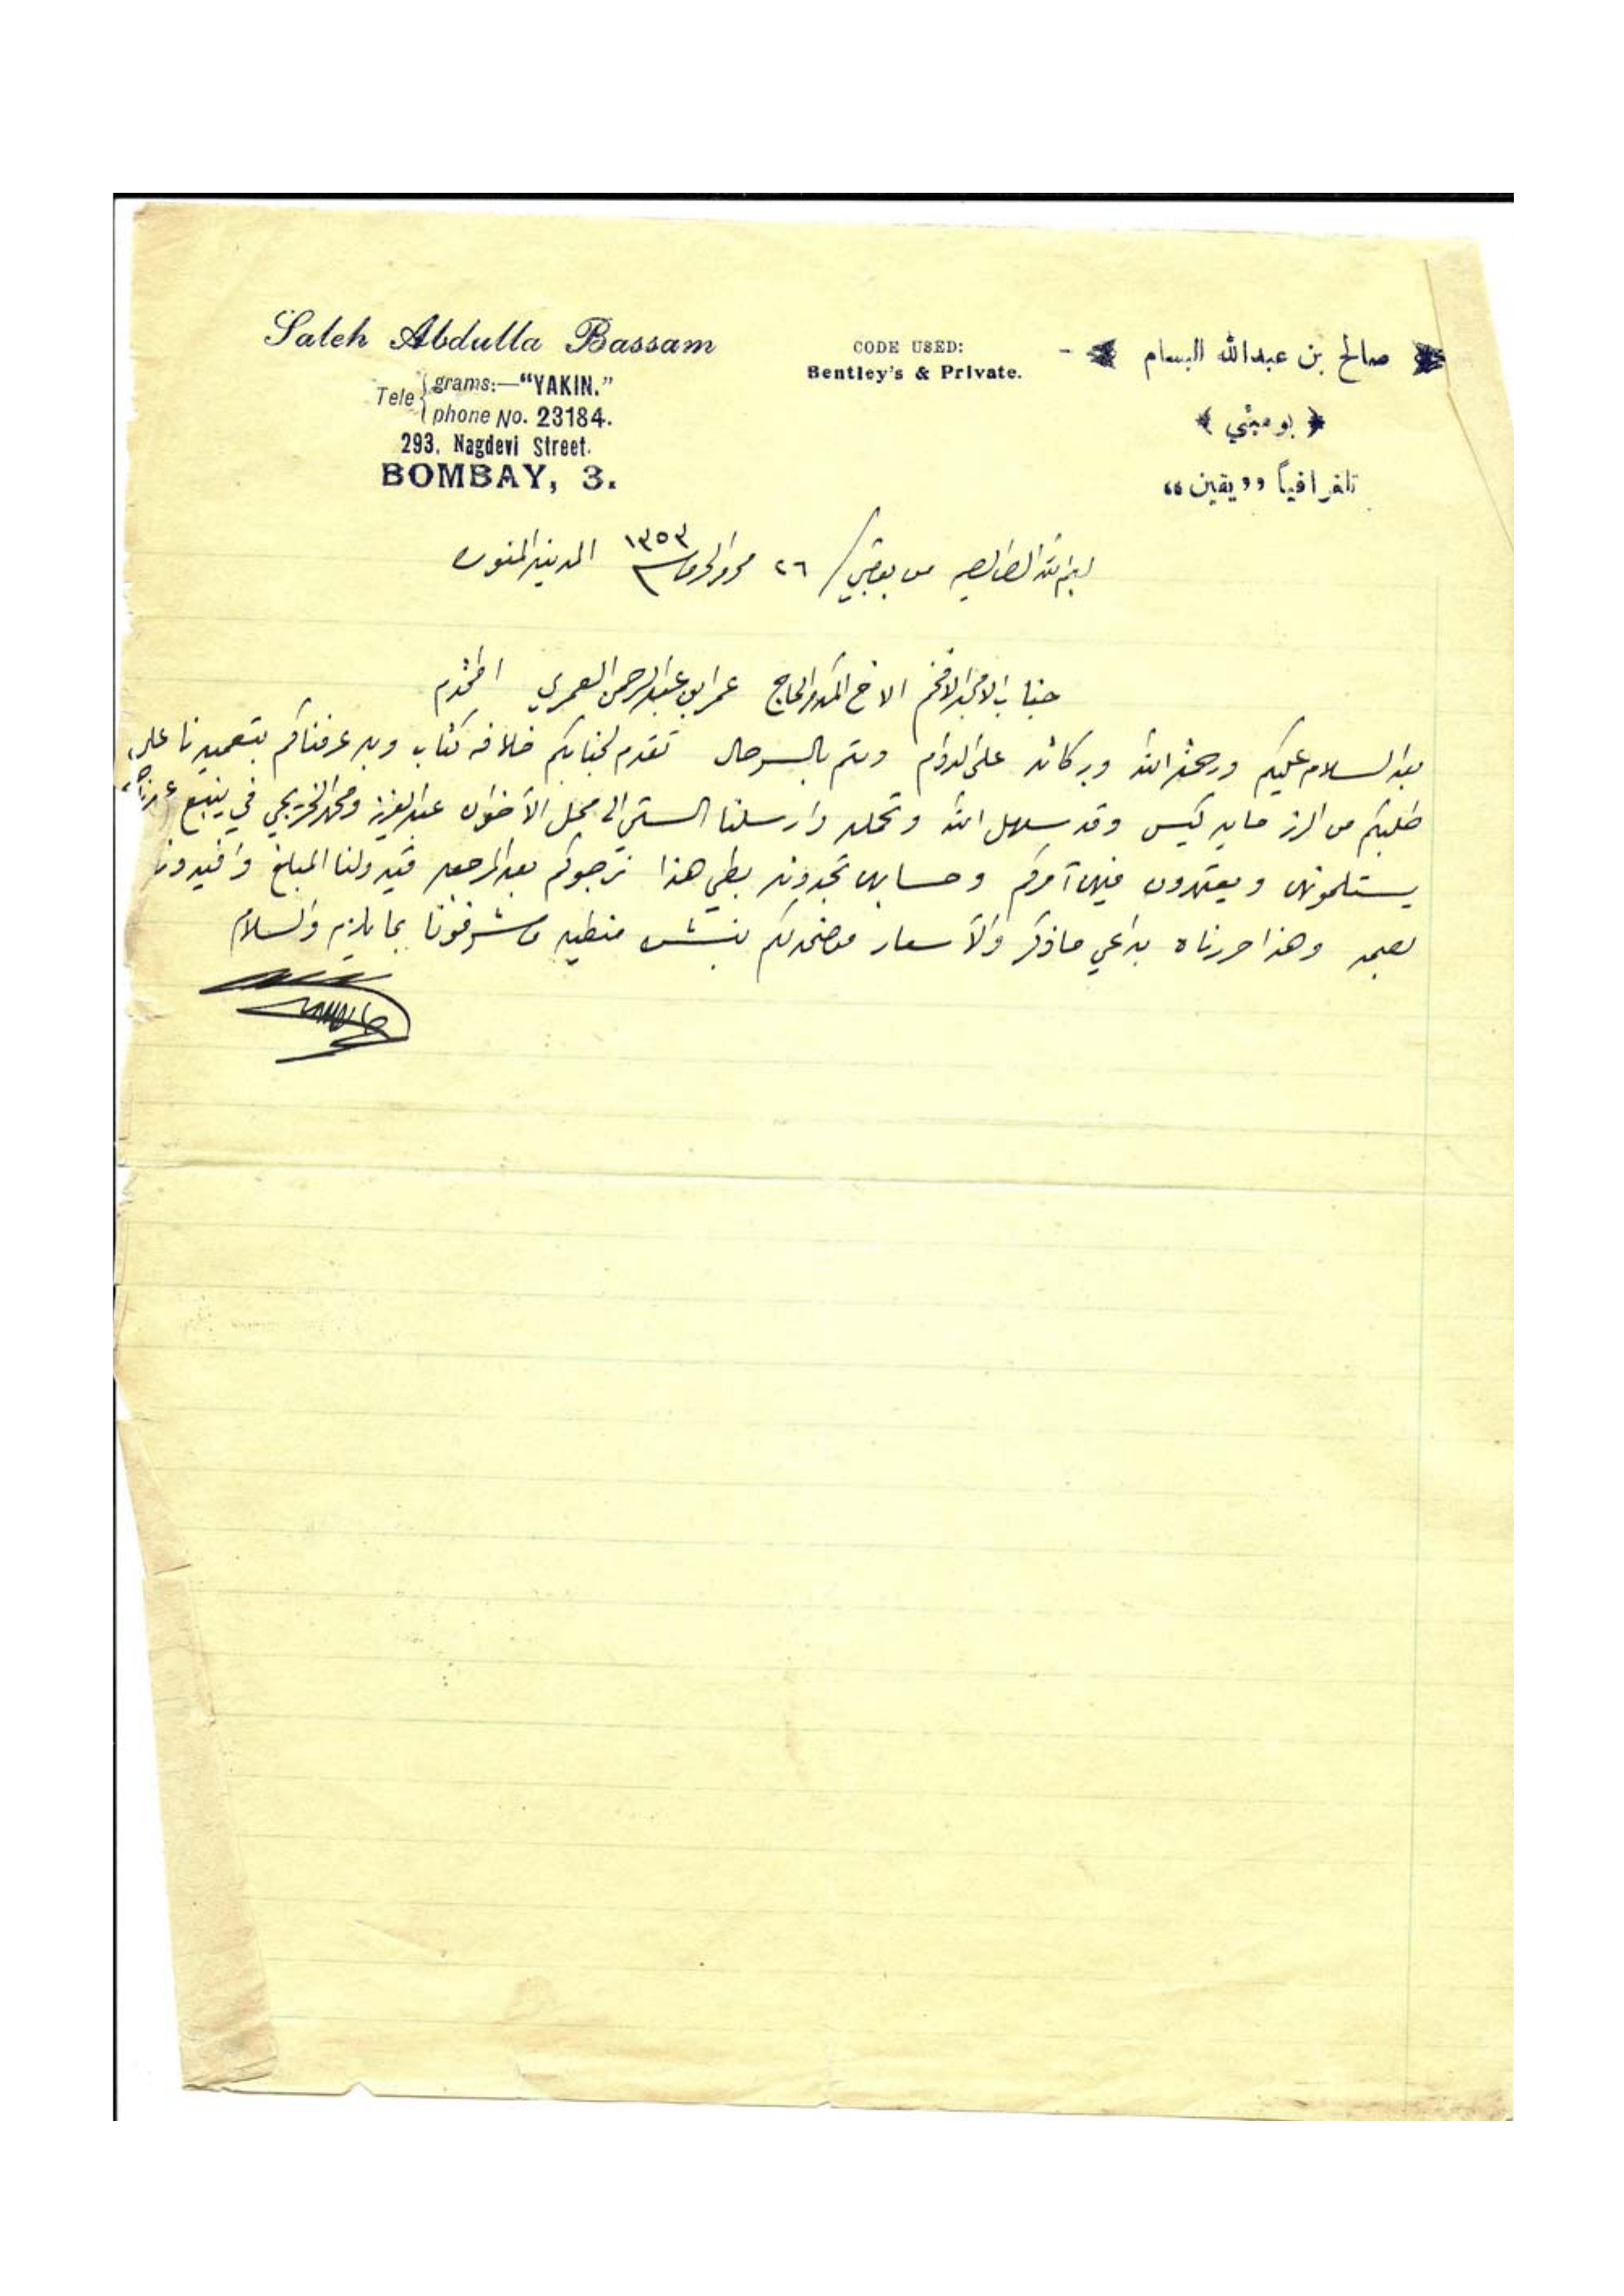 Saleh Abdulla Bassam
Tele { grams:—“YAKIN.”
phone No. 23184.
293, Nagdevi Street.
BOMBAY, 3.
CODE USED:
Bentley's & Private.
صالح بن عبدالله البسام
﴿ بومبئي ﴾
تلغرافياً ,,يقين“
من بومبي / ٢٦ محرم الحرام ١٣٥٣ المدينة المنوره
جناب الامجد الافخم الاخ المكرم الحاج عمر ابن عبدالرحمن العمري المحترم
بعد السلام عليكم ورحمة الله وبركاته على الدوام تقدم لجنابكم خلافه كتاب وبه عرفناكم بتعميدنا على
طلبكم من الرز مايه كيس وقد سهل الله وارسلنا الستمي الى محل الأخوان عبدالعزيز ومحمد الخريجي في ينبع
يستلمونهن ويعتمدون فيهن أمركم وحسابهن تجدونه بطي هذا نرجوكم بعد المرجعه قيدوا لنا المبلغ وافيدونا
بصحه وهذا حررناه بداعي ماذكر والأسعار موضحه لكم شرفونا بما يلزم والسلام